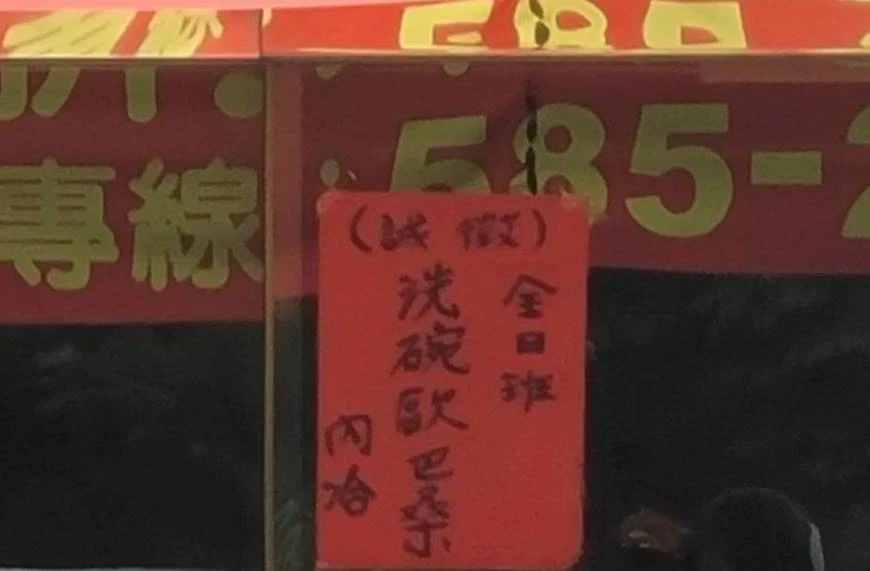 585-
專線
585-2
(誠徵)
全日班
洗碗歐巴桑
內洽